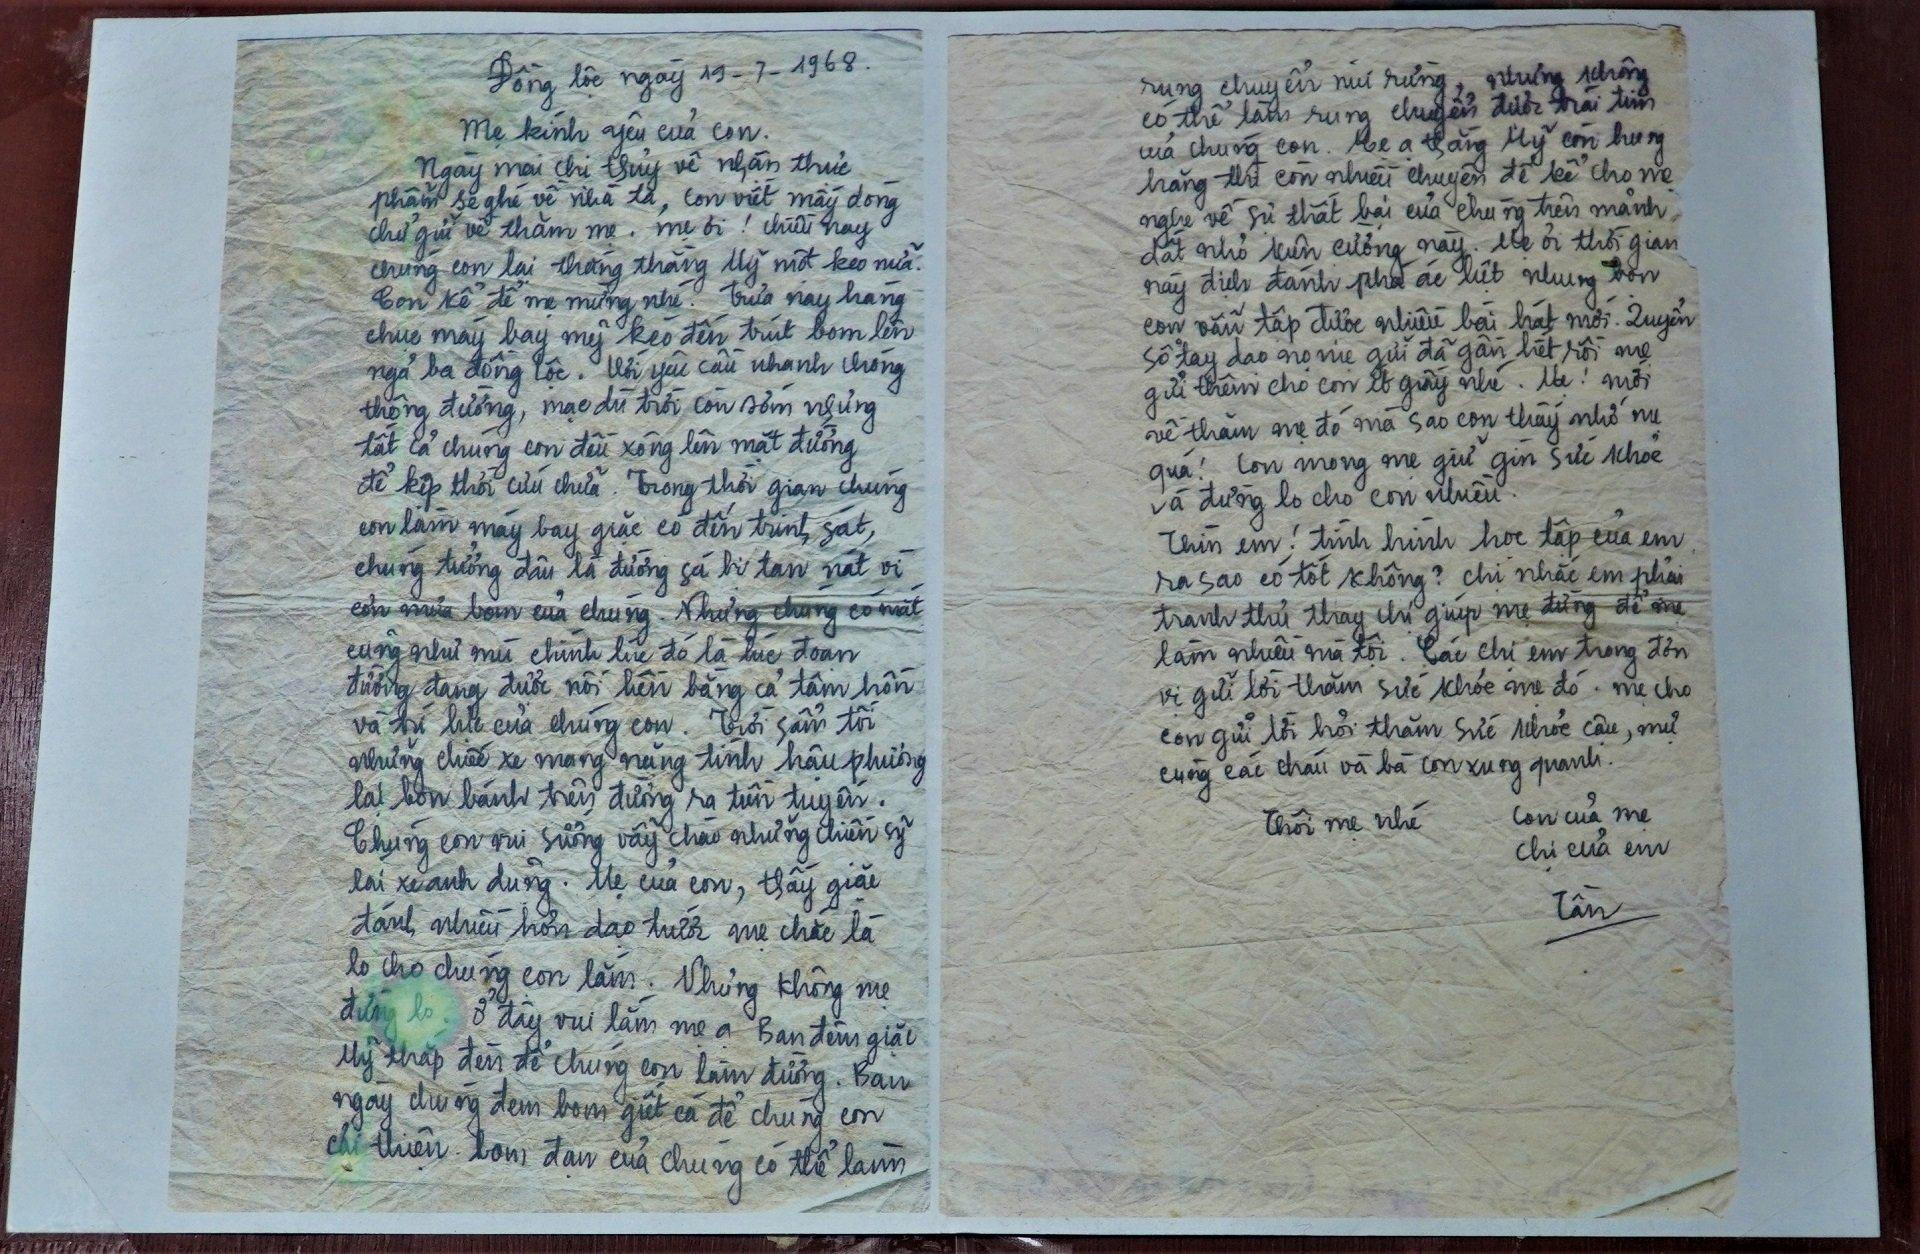 Đồng lộc ngày 19-7-1968.
Mẹ kính yêu của con.
Ngày mai chị thủy về nhận thực
phẩm sẽ ghé về nhà ta, con viết mấy dòng
chữ gửi về thăm mẹ. mẹ ơi! chiều nay
chúng con lại thắng thằng Mỹ một keo nữa.
Con kể để mẹ mừng nhé. Trưa nay hàng
chục máy bay mỹ kéo đến trút bom lên
ngả ba đồng lộc. Với yêu cầu nhanh chóng
thông đường, mặc dù trời còn sớm nhưng
tất cả chúng con đều xông lên mặt đường
để kịp thời cứu chữa. Trong thời gian chúng
con làm máy bay giặc có đến trinh sát,
chúng tưởng đâu là đường sá bị tan nát vì
cơn mưa bom của chúng. Nhưng chúng có mắt
cũng như mù chính lúc đó là lúc đoạn
đường đang được nối liền bằng cả tâm hồn
và trí lực của chúng con. Trời sẩm tối
những chiếc xe mang nặng tình hậu phương
lại bon bánh trên đường ra tiền tuyến.
Chúng con vui sướng vẫy chào những chiến sỹ
lái xe anh dũng. Mẹ của con, thấy giặc
đánh nhiều hơn dạo trước mẹ chắc là
lo cho chúng con lắm. Nhưng không mẹ
đừng lo. Ở đây vui lắm mẹ ạ Ban đêm giặc
Mỹ thắp đèn để chúng con làm đường. Ban
ngày chúng đem bom giết cá để chúng con
cải thiện. bom đạn của chúng có thể làm
rung chuyển núi rừng, nhưng không
có thể làm rung chuyển được trái tim
của chúng con. Mẹ ạ thằng Mỹ còn hung
hăng thì còn nhiều chuyện để kể cho mẹ
nghe về sự thất bại của chúng trên mảnh
đất nhỏ kiên cường này. Mẹ ơi thời gian
này địch đánh phá ác liệt nhưng bọn
con vẫn tập được nhiều bài hát mới. Quyển
sổ tay dạo nọ mẹ gửi đã gần hết rồi mẹ
gửi thêm cho con ít giấy nhé. Mẹ! mới
về thăm mẹ đó mà sao con thấy nhớ mẹ
quá! Con mong mẹ giữ gìn sức khỏe
và đừng lo cho con nhiều.
Thìn em! tình hình học tập của em
ra sao có tốt không? chị nhắc em phải
tranh thủ thay chị giúp mẹ đừng để mẹ
làm nhiều mà tội. Các chị em trong đơn
vị gửi lời thăm sức khỏe mẹ đó. mẹ cho
con gửi lời hỏi thăm sức khỏe cậu, mự
cùng các cháu và bà con xung quanh.
Thôi mẹ nhé
Con của mẹ
Chị của em
Tần